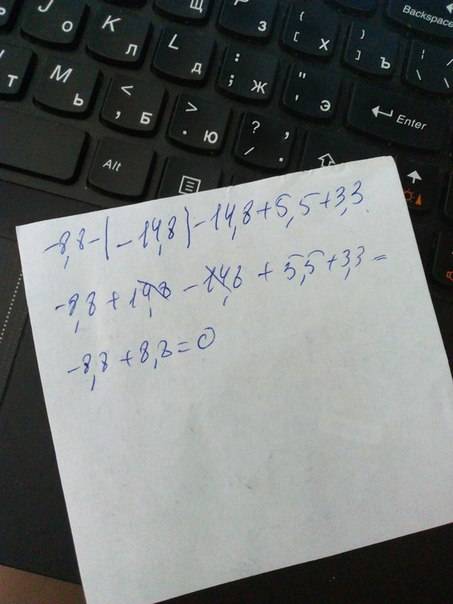 Backspace
J
о
K
л
L
д
:
;
ж
"
'
э
{
[
х
}
]
ъ
3
Т
М
ь
<
,
б
>
.
ю
?
/
,
.
Enter
Alt
-8,8-(-14,8)-14,8+5,5+3,3
-8,8+14,8-14,8+5,5+3,3=
-8,8+8,8=0